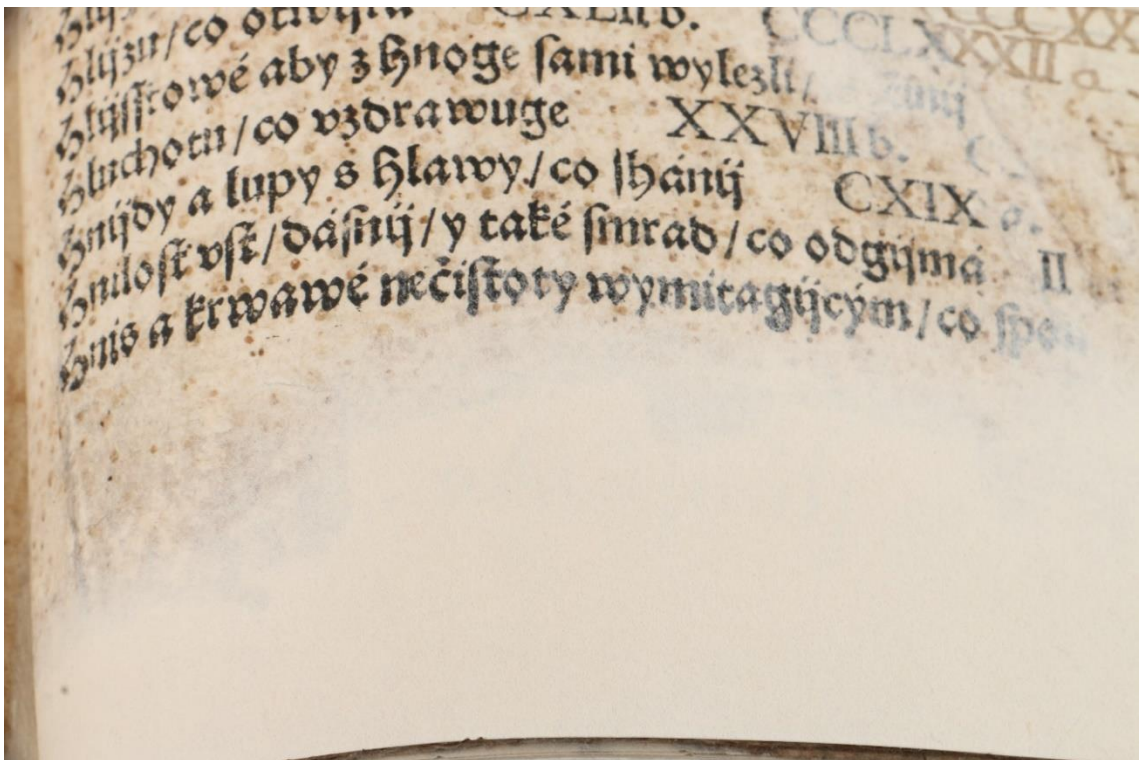 Hlijzu/co otwijra CXLII b.
CCCLXXXII a
Hlijsstowé aby z hnoge sami wylezli/
Hluchotu/co vzdrawuge XXVIII b.
Hnijdy a lupy s hlawy/co shánij CXIX a.
Hnilost vst/dásnij/y také smrad/co odgijmá II
Hnis a krwawé nečistoty wymitagijcým/co